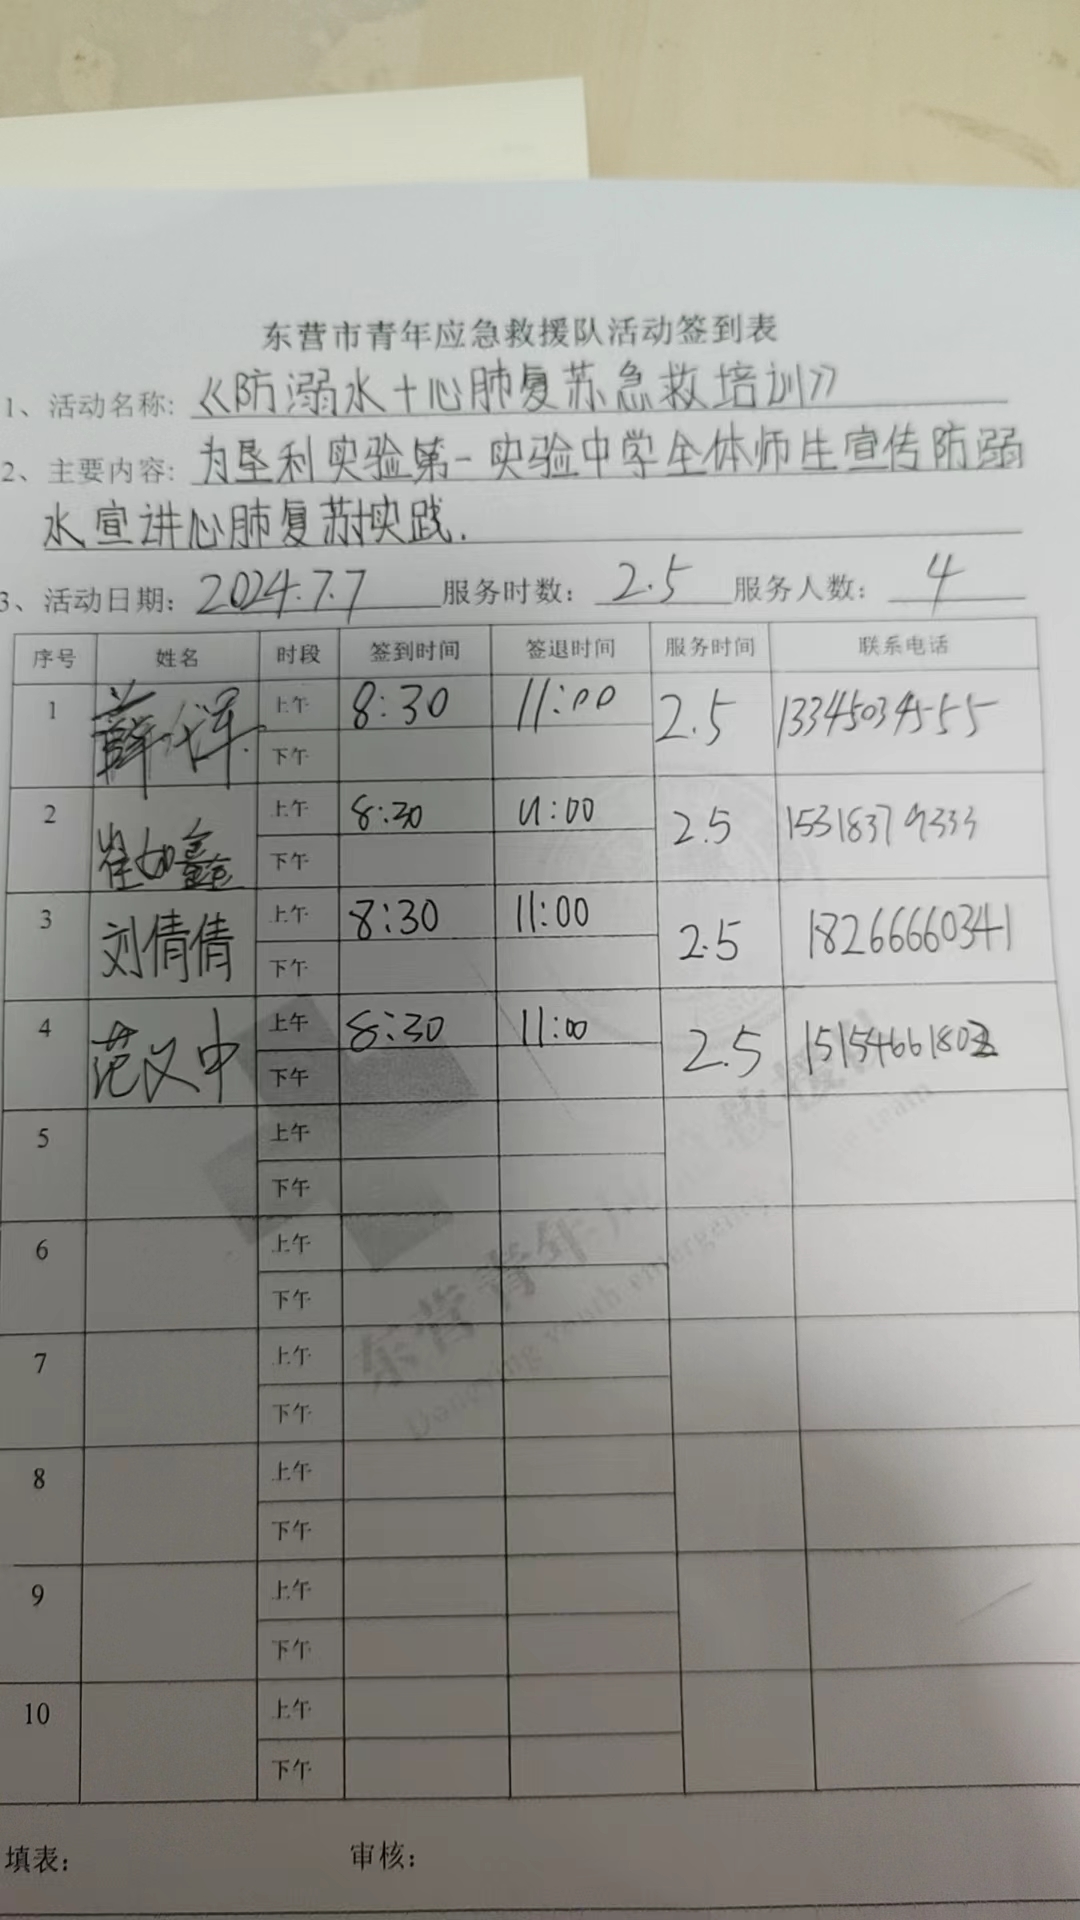 东营市青年应急救援队活动签到表
1、活动名称: 《防溺水+心肺复苏急救培训》
2、主要内容: 为垦利实验第一实验中学全体师生宣传防溺
水宣讲心肺复苏实践.
3、活动日期: 2024.7.7 服务时数: 2.5 服务人数: 4
序号 姓名 时段 签到时间 签退时间 服务时间 联系电话
1 薛 上午 8:30 11:00 2.5 13345034555
下午
2 崔如鑫 上午 8:30 11:00 2.5 15318379333
下午
3 刘倩倩 上午 8:30 11:00 2.5 18266660341
下午
4 范义中 上午 8:30 11:00 2.5 1515466180
下午
5 上午
下午
6 上午
下午
7 上午
下午
8 上午
下午
9 上午
下午
10 上午
下午
东营青年应急救援队
Dongying youth emergency rescue team
填表: 审核: